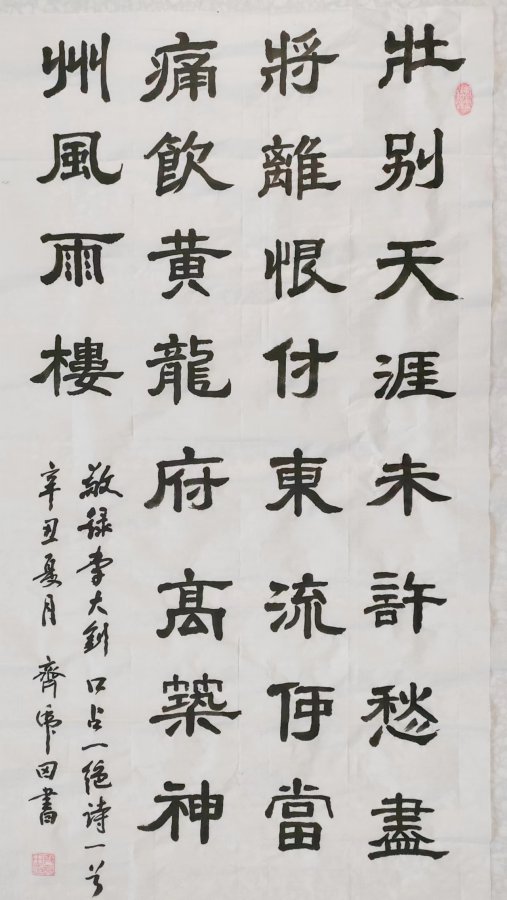 壯別天涯未許愁盡
將離恨付東流何當
痛飲黃龍府高築神
州風雨樓
敬録李大釗口占一絕詩一首
辛丑夏月齊帅田書